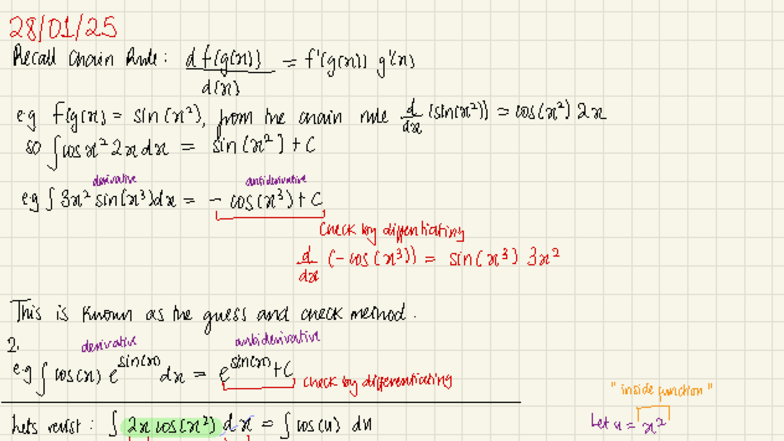 28/01/25
Recall Chain Rule: d f(g(x)) / d(x) = f'(g(x)) g'(x)
e.g f(g(x) = sin(x²), from the chain rule d/dx (sin(x²)) = cos(x²) 2x
so ∫cos x² 2x dx = sin(x²) + C
derivative antiderivative
e.g ∫ 3x² sin(x³)dx = - cos(x³) + C
Check by differentiating
d/dx (-cos(x³)) = sin(x³) 3x²
This is known as the guess and check method.
2. derivative antiderivative
e.g ∫ cos(x) e^sin(x) dx = e^sin(x) + C
check by differentiating
"inside function"
Lets revist: ∫ 2x cos(x²) dx = ∫ cos(u) du
Let u = x²